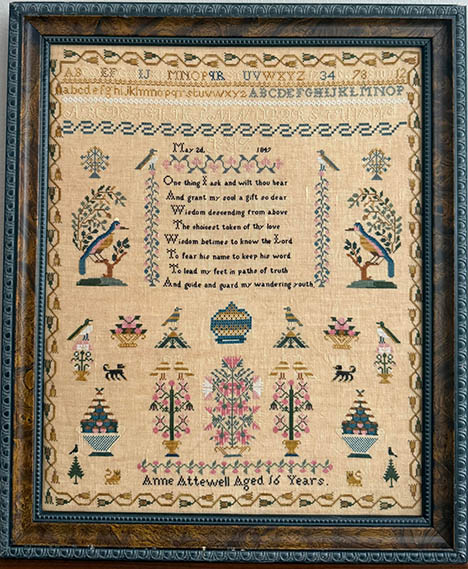 AB EF IJ MNOP QR UVWXYZ 34 78 12
abcdefghijklmnopqrstuvwxyz ABCDEFGHIJKLMNOP
May 24 1849
One thing I ask and wilt thou hear
And grant my soul a gift so dear
Wisdom descending from above
The choicest token of thy love
Wisdom betimes to know the Lord
To fear his name to keep his word
To lead my feet in paths of truth
And guide and guard my wandering youth
Anne Attewell Aged 16 Years.